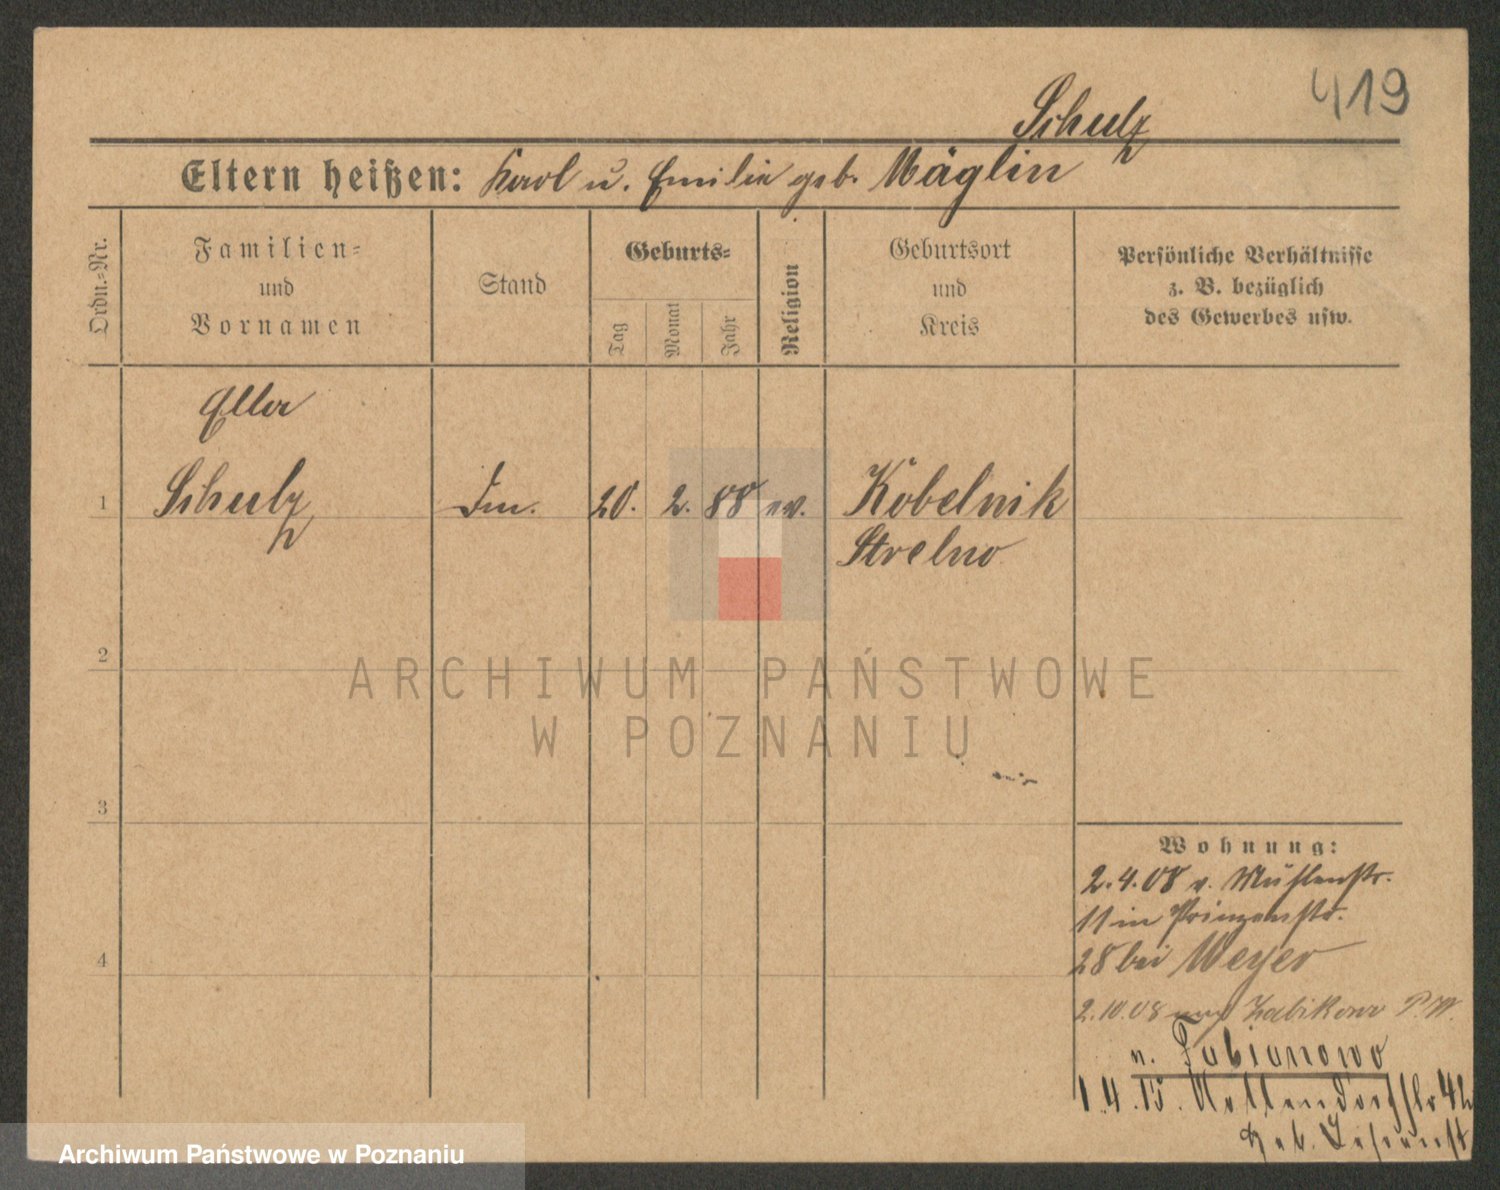 419
Schulz
Eltern heißen: Karl u. Emilie geb. Mäglin
Ordn.=Nr.
Familien=
und
Vornamen
Stand
Geburts=
Tag
Monat
Jahr
Religion
Geburtsort
und
Kreis
Persönliche Verhältnisse
z. B. bezüglich
des Gewerbes usw.
Ella
1 Schulz 20. 2. 88 ev. Kobelnik
Strelno
2
3
4
Wohnung:
2.4.08 v. Mühlenstr.
11 in Prinzenstr.
28 bei Weyer
2.10.08 Zabikowo P.W.
n. Fabianowo
1.4.15.
geb.
ARCHIWUM PAŃSTWOWE
W POZNANIU
Archiwum Państwowe w Poznaniu